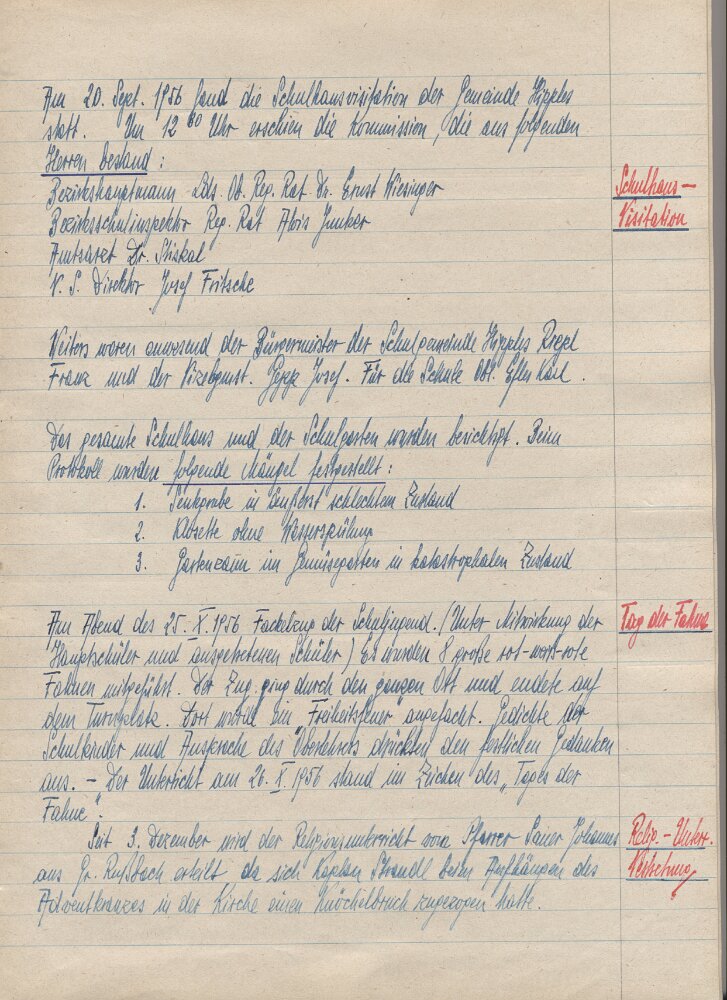 Am 20. Sept. 1956 fand die Schulhausvisitation der Gemeinde Hipples
statt. Um 12 00 Uhr erschien die Kommission, die aus folgenden
Herren bestand :
Bezirkshauptmann Lds. Ob. Reg. Rat Dr. Ernst Wiesinger
Bezirksschulinspektor Reg. Rat Alois Junker
Amtsarzt Dr. Stiskal
V. S. Direktor Josef Fritsche
Schulhaus-
Visitation
Weiters waren anwesend der Bürgermeister der Schulgemeinde Hipples
Franz und der Vizebgmst. Josef. Für die Schule Obl. Karl.
Das gesamte Schulhaus und der Schulgarten wurden besichtigt. Beim
Protokoll wurden folgende Mängel festgestellt :
1. Senkgrube in äußerst schlechtem Zustand
2. Klosette ohne Wasserspülung
3. Gartenzaun im Gemüsegarten in katastrophalen Zustand
Am Abend des 25. X. 1956 Fackelzug der Schuljugend. (Unter Mitwirkung der
Hauptschüler und ausgetretenen Schüler) Es wurden 8 große rot-weiß-rote
Fahnen mitgeführt. Der Zug ging durch den ganzen Ort und endete auf
dem Turnplatz. Dort wurde ein „Freiheitsfeuer" angefacht. Gedichte der
Schulkinder und Ansprache des Oberlehrers drückten den festlichen Gedanken
aus. - Der Unterricht am 26. X. 1956 stand im Zeichen des „Tages der
Fahne".
Tag der Fahne
Seit 3. Dezember wird der Religionsunterricht vom Pfarrer Johannes
aus Gr. Rußbach erteilt da sich Kaplan Strandl beim Aufhängen des
Adventkranzes in der Kirche einen Knöchelbruch zugezogen hatte.
Relig.-Unterr.
Vertretung